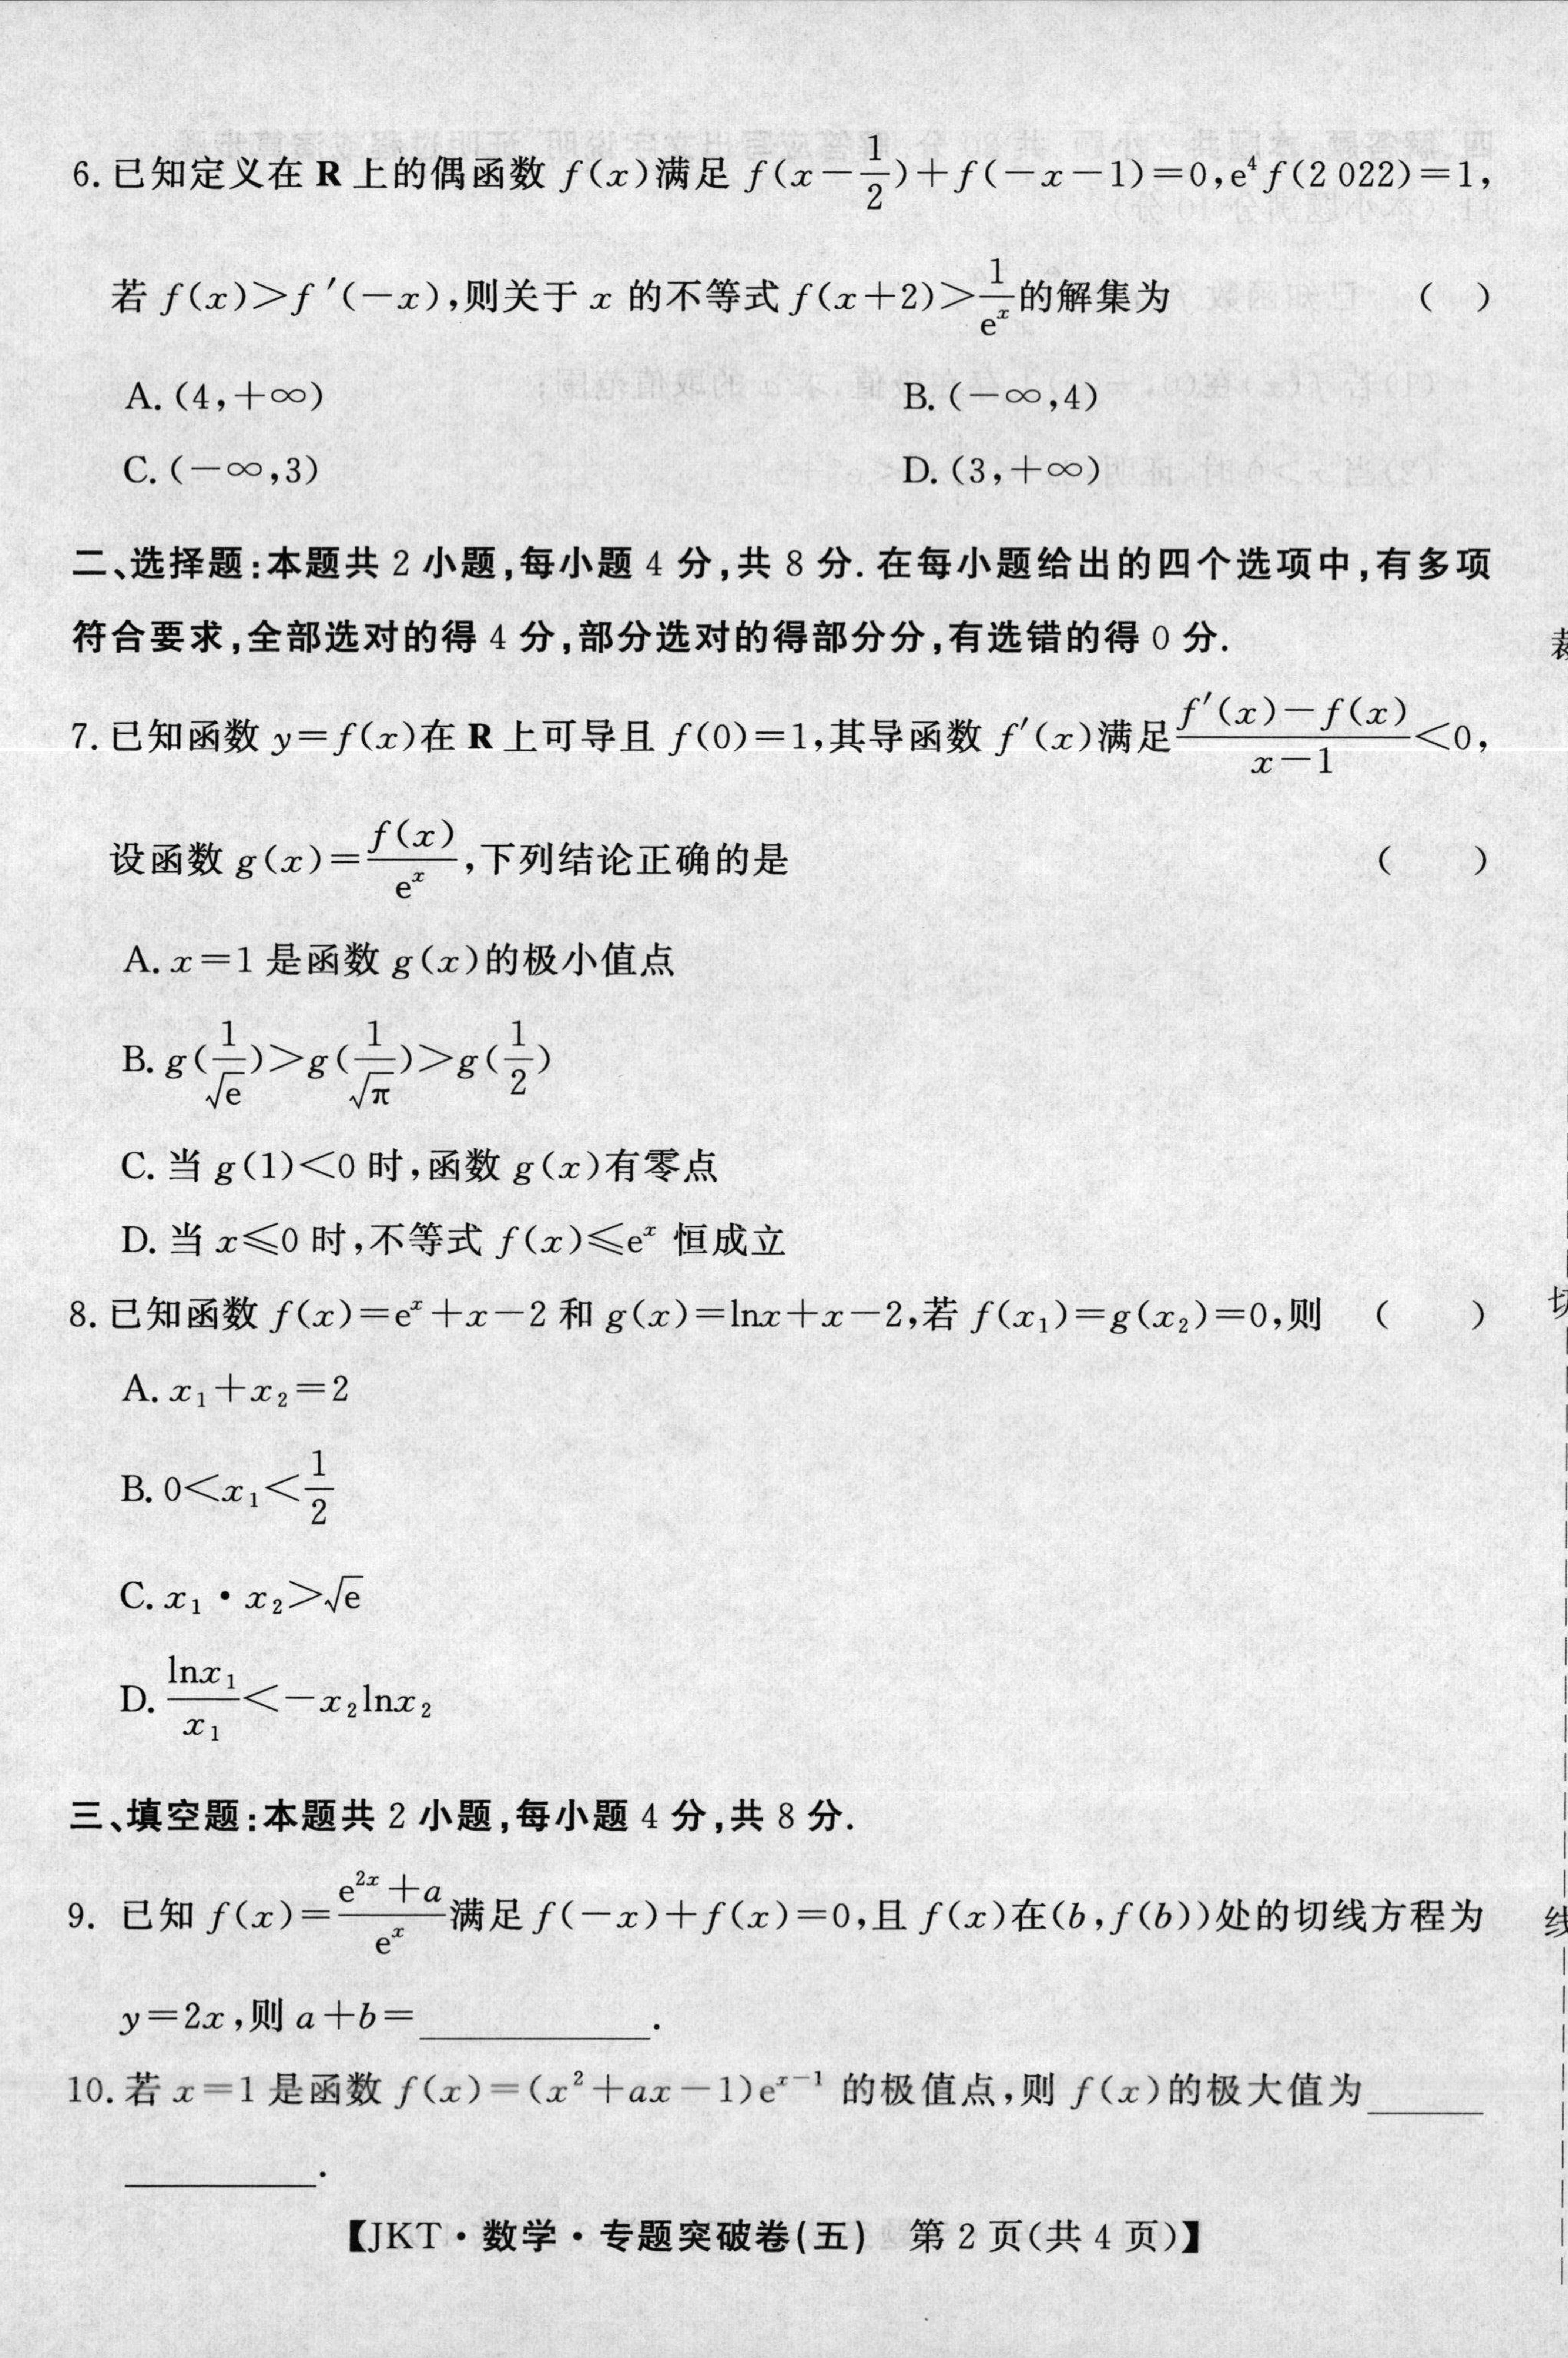 6. 已知定义在 R 上的偶函数 f(x)满足 f(x-1/2)+f(-x-1)=0,e⁴f(2 022)=1,
若 f(x)>f′(-x),则关于 x 的不等式 f(x+2)>1/eˣ的解集为 ( )
A. (4,+∞) B. (-∞,4)
C. (-∞,3) D. (3,+∞)
二、选择题:本题共 2 小题,每小题 4 分,共 8 分. 在每小题给出的四个选项中,有多项
符合要求,全部选对的得 4 分,部分选对的得部分分,有选错的得 0 分.
7. 已知函数 y=f(x)在 R 上可导且 f(0)=1,其导函数 f′(x)满足(f′(x)-f(x))/(x-1)<0,
设函数 g(x)=f(x)/eˣ,下列结论正确的是 ( )
A. x=1 是函数 g(x)的极小值点
B. g(1/√e)>g(1/√π)>g(1/2)
C. 当 g(1)<0 时,函数 g(x)有零点
D. 当 x≤0 时,不等式 f(x)≤eˣ 恒成立
8. 已知函数 f(x)=eˣ+x-2 和 g(x)=lnx+x-2,若 f(x₁)=g(x₂)=0,则 ( )
A. x₁+x₂=2
B. 0<x₁<1/2
C. x₁·x₂>√e
D. lnx₁/x₁<-x₂lnx₂
三、填空题:本题共 2 小题,每小题 4 分,共 8 分.
9. 已知 f(x)=(e²ˣ+a)/eˣ满足 f(-x)+f(x)=0,且 f(x)在(b,f(b))处的切线方程为
y=2x,则 a+b=____________.
10. 若 x=1 是函数 f(x)=(x²+ax-1)eˣ⁻¹ 的极值点,则 f(x)的极大值为______
__________.
【JKT·数学·专题突破卷(五) 第 2 页(共 4 页)】
切
线